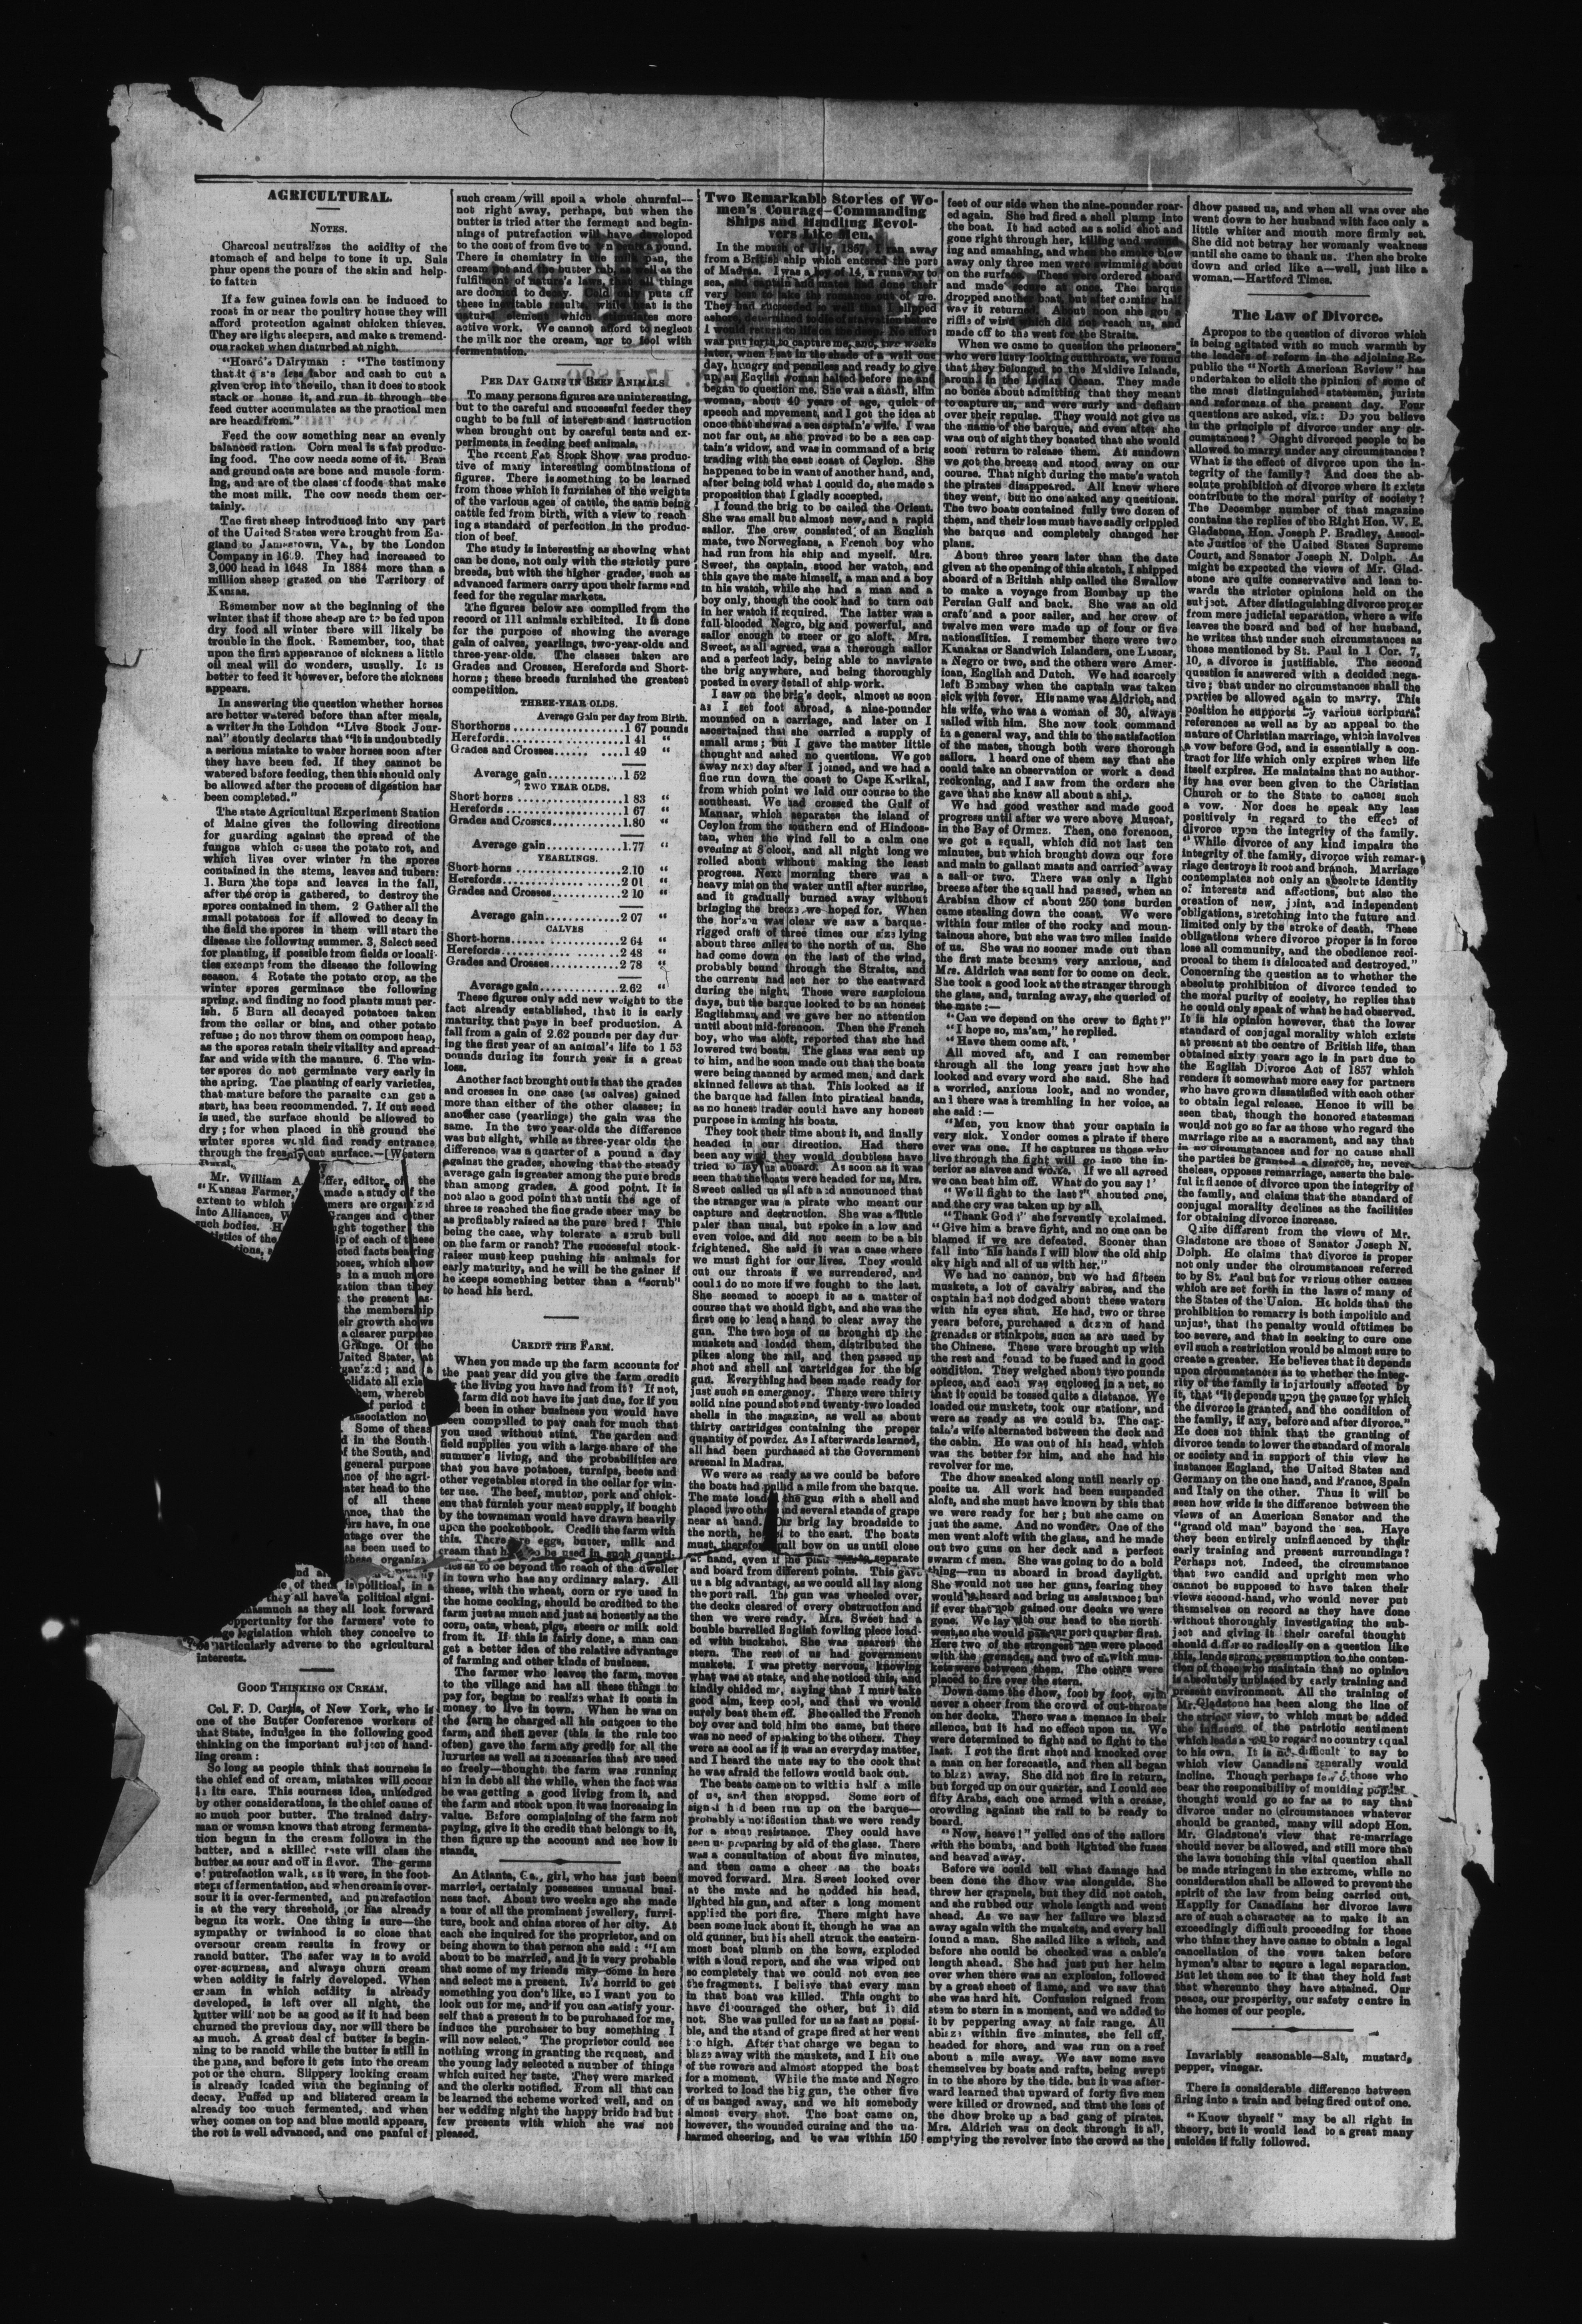 AGRICULTURAL.
NOTES.
Charcoal neutralizes the acidity of the
stomach of and helps to tone it up. Suls
phur opens the pours of the skin and help-
to fatten
If a few guinea fowls can be induced to
roost in or near the poultry house they will
afford protection against chicken thieves.
They are light sleepers, and make a tremend-
ous racket when disturbed at night.
"Hoard's Dairyman : "The testimony
that it less labor and cash to cut a
given crop into the silo, than it does to stock
stack or house it, and run it through the
feed cutter accumulates as the practical men
are heard from."
Feed the cow something near an evenly
balanced ration. Corn meal is a fat produc-
ing food. The cow needs some of it. Bran
and ground oats are bone and muscle form-
ing, and are of the class of foods that make
the most milk. The cow needs them cer-
tainly.
The first sheep introduced into any part
of the United States were brought from En-
gland to Jamestown, Va., by the London
Company in 1609. They had increased to
3,000 head in 1648 In 1884 more than a
million sheep grazed on the Territory of
Kansas.
Remember now at the beginning of the
winter that if those sheep are to be fed upon
dry food all winter there will likely be
trouble in the flock. Remember, too, that
upon the first appearance of sickness a little
oil meal will do wonders, usually. It is
better to feed it however, before the sickness
appears.
In answering the question whether horses
are better watered before than after meals,
a writer in the London "Live Stock Jour-
nal" stoutly declares that "it is undoubtedly
a serious mistake to water horses soon after
they have been fed. If they cannot be
watered before feeding, then this should only
be allowed after the process of digestion has
been completed."
The state Agricultural Experiment Station
of Maine gives the following directions
for guarding against the spread of the
fungus which causes the potato rot, and
which lives over winter in the spores
contained in the stems, leaves and tubers:
1. Burn the tops and leaves in the fall,
after the crop is gathered, to destroy the
spores contained in them. 2 Gather all the
small potatoes for if allowed to decay in
the field the spores in them will start the
disease the following summer. 3, Select seed
for planting, if possible from fields or locali-
ties exempt from the disease the following
season. 4 Rotate the potato crop, as the
winter spores germinate the following
spring, and finding no food plants must per-
ish. 5 Burn all decayed potatoes taken
from the cellar or bins, and other potato
refuse; do not throw them on compost heap,
as the spores retain their vitality and spread
far and wide with the manure. 6. The win-
ter spores do not germinate very early in
the spring. The planting of early varieties,
that mature before the parasite can get a
start, has been recommended. 7. If cut seed
is used, the surface should be allowed to
dry; for when placed in the ground the
winter spores would find ready entrance
through the freshly cut surface.—[Western
Rural.
Mr. William A. editor, of the
"Kansas Farmer," made a study of the
extent to which are organized
into Alliances, Granges and other
such bodies. together the
of the of each of these
facts bearing
which show
in a much more
than they
the present as-
the membership
growth shows
a clearer purpose
Grange. Of the
United States, at
and
all exis
whereb
period
association no
Some of these
in the South-
of the South, and
general purpose
of the agri-
head to the
of all these
that the
have, in one
over the
been used to
these organiz
and
of them is political, in a
they all have a political signi-
inasmuch as they all look forward
opportunity for the farmers' vote to
legislation which they conceive to
be particularly adverse to the agricultural
interests.
GOOD THINKING ON CREAM.
Col. F. D. Curtis, of New York, who is
one of the Butter Conference workers of
that State, indulges in the following good
thinking on the important subject of hand-
ling cream :
So long as people think that sourness is
the chief end of cream, mistakes will occur
in its care. This sourness idea, unhedged
by other considerations, is the chief cause of
so much poor butter. The trained dairy-
man or woman knows that strong fermenta-
tion begun in the cream follows in the
butter, and a skilled taste will class the
butter as sour and off in flavor. The germs
of putrefaction walk, as it were, in the foot-
steps of fermentation, and when cream is over-
sour it is over-fermented, and putrefaction
is at the very threshold, or has already
begun its work. One thing is sure—the
sympathy or twinhood is so close that
oversour cream results in frowy or
rancid butter. The safer way is to avoid
over-sourness, and always churn cream
when acidity is fairly developed. When
cream in which acidity is already
developed, is left over all night, the
butter will not be as good as if it had been
churned the previous day, nor will there be
as much. A great deal of butter is begin-
ning to be rancid while the butter is still in
the pans, and before it gets into the cream
pot or the churn. Slippery looking cream
is already loaded with the beginning of
decay. Puffed up and blistered cream is
already too much fermented, and when
whey comes on top and blue mould appears,
the rot is well advanced, and one panful of
such cream will spoil a whole churnful—
not right away, perhaps, but when the
butter is tried after the ferment and begin-
nings of putrefaction will have developed
to the cost of from five to ten cents a pound.
There is chemistry in the milk pan, the
cream pot and the butter tub, as well as the
fulfilment of nature's laws, that all things
are doomed to decay. Cold only puts off
these inevitable results, while heat is the
natural element which stimulates more
active work. We cannot afford to neglect
the milk nor the cream, nor to fool with
fermentation.
PER DAY GAINS IN BEEF ANIMALS
To many persons figures are uninteresting,
but to the careful and successful feeder they
ought to be full of interest and instruction
when brought out by careful tests and ex-
periments in feeding beef animals.
The recent Fat Stock Show was produc-
tive of many interesting combinations of
figures. There is something to be learned
from those which it furnishes of the weights
of the various ages of cattle, the same being
cattle fed from birth, with a view to reach-
ing a standard of perfection in the produc-
tion of beef.
The study is interesting as showing what
can be done, not only with the strictly pure
breeds, but with the higher grades, such as
advanced farmers carry upon their farms and
feed for the regular markets.
The figures below are compiled from the
record of 111 animals exhibited. It is done
for the purpose of showing the average
gain of calves, yearlings, two-year-olds and
three-year-olds. The classes taken are
Grades and Crosses, Herefords and Short-
horns; these breeds furnished the greatest
competition.
THREE-YEAR OLDS.
Average Gain per day from Birth.
Shorthorns..................1 67 pounds
Herefords..................1 41 "
Grades and Crosses..........1 49 "
Average gain............1 52
TWO YEAR OLDS.
Short horns..................1 83 "
Herefords..................1 67 "
Grades and Crosses..........1.80 "
Average gain............1.77 "
YEARLINGS.
Short horns..................2.10 "
Herefords..................2 01 "
Grades and Crosses..........2 10 "
Average gain............2 07 "
CALVES
Short-horns..................2 64 "
Herefords..................2 48 "
Grades and Crosses..........2 78 "
Average gain............2.62 "
These figures only add new weight to the
fact already established, that it is early
maturity that pays in beef production. A
fall from a gain of 2.62 pounds per day dur-
ing the first year of an animal's life to 1 53
pounds during its fourth year is a great
loss.
Another fact brought out is that the grades
and crosses in one case (as calves) gained
more than either of the other classes; in
another case (yearlings) the gain was the
same. In the two year olds the difference
was but slight, while as three-year olds the
difference was a quarter of a pound a day
against the grades, showing that the steady
average gain is greater among the pure breds
than among grades. A good point. It is
not also a good point that until the age of
three is reached the fine grade steer may be
as profitably raised as the pure bred! This
being the case, why tolerate a scrub bull
on the farm or ranch? The successful stock-
raiser must keep pushing his animals for
early maturity, and he will be the gainer if
he keeps something better than a "scrub"
to head his herd.
CREDIT THE FARM.
When you made up the farm accounts for
the past year did you give the farm credit
the living you have had from it? If not,
farm did not have its just due, for if you
been in other business you would have
been compelled to pay cash for much that
you used without stint. The garden and
field supplies you with a large share of the
summer's living, and the probabilities are
that you have potatoes, turnips, beets and
other vegetables stored in the cellar for win-
ter use. The beef, mutton, pork and chick-
ens that furnish your meat supply, if bought
by the townsman would have drawn heavily
upon the pocketbook. Credit the farm with
this. There eggs, butter, milk and
cream that to be used in such quanti-
ties as to be beyond the reach of the dweller
in town who has any ordinary salary. All
these, with the wheat, corn or rye used in
the home cooking, should be credited to the
farm just as much and just as honestly as the
corn, oats, wheat, pigs, steers or milk sold
from it. If this is fairly done, a man can
get a better idea of the relative advantage
of farming and other kinds of business.
The farmer who leaves the farm, moves
to the village and has all these things to
pay for, begins to realize what it costs in
money to live in town. When he was on
the farm he charged all his outgoes to the
farm, and then never (this is the rule too
often) gave the farm any credit for all the
luxuries as well as necessaries that are used
so freely—thought the farm was running
him in debt all the while, when the fact was
he was getting a good living from it, and
the farm and stock upon it was increasing in
value. Before complaining of the farm not
paying, give it the credit that belongs to it,
then figure up the account and see how it
stands.
An Atlanta, Ga., girl, who has just been
married, certainly possesses unusual busi-
ness tact. About two weeks ago she made
a tour of all the prominent jewellery, furni-
ture, book and china stores of her city. At
each she inquired for the proprietor, and on
being shown to that person she said : "I am
about to be married, and it is very probable
that some of my friends may come in here
and select me a present. It's horrid to get
something you don't like, so I want you to
look out for me, and if you can satisfy your-
self that a present is to be purchased for me,
induce the purchaser to buy something I
will now select." The proprietor could see
nothing wrong in granting the request, and
the young lady selected a number of things
which suited her taste. They were marked
and the clerks notified. From all that can
be learned the scheme worked well, and on
her wedding night the happy bride had but
few presents with which she was not
pleased.
Two Remarkable Stories of Wo-
men's Courage—Commanding
Ships and Handling Revol-
vers Like Men.
In the month of July, 1867, I ran away
from a British ship which entered the port
of Madras. I was a boy of 14, a runaway to
sea, and captain and mates had done their
very best to take the romance out of me.
They had succeeded so well that I slipped
ashore, determined to die of starvation before
I would return to life on the deep. No effort
was put forth to capture me, and, two weeks
later, when I sat in the shade of a wall one
day, hungry and penniless and ready to give
up, an English woman halted before me and
began to question me. She was a small, slim
woman, about 40 years of age, quick of
speech and movement, and I got the idea at
once that she was a sea captain's wife. I was
not far out, as she proved to be a sea cap-
tain's widow, and was in command of a brig
trading with the east coast of Ceylon. She
happened to be in want of another hand, and,
after being told what I could do, she made a
proposition that I gladly accepted.
I found the brig to be called the Orient.
She was small but almost new, and a rapid
sailor. The crew consisted, of an English
mate, two Norwegians, a French boy who
had run from his ship and myself. Mrs.
Sweet, the captain, stood her watch, and
this gave the mate himself, a man and a boy
in his watch, while she had a man and a
boy only, though the cook had to turn out
in her watch if required. The latter was a
full-blooded Negro, big and powerful, and
sailor enough to steer or go aloft. Mrs.
Sweet, as all agreed, was a thorough sailor
and a perfect lady, being able to navigate
the brig anywhere, and being thoroughly
posted in every detail of ship work.
I saw on the brig's deck, almost as soon
as I set foot abroad, a nine-pounder
mounted on a carriage, and later on I
ascertained that she carried a supply of
small arms; but I gave the matter little
thought and asked no questions. We got
away next day after I joined, and we had a
fine run down the coast to Cape Karikal,
from which point we laid our course to the
southeast. We had crossed the Gulf of
Manaar, which separates the island of
Ceylon from the southern end of Hindoos-
tan, when the wind fell to a calm one
evening at 8 clock, and all night long we
rolled about without making the least
progress. Next morning there was a
heavy mist on the water until after sunrise,
and it gradually burned away without
bringing the breeze we hoped for. When
the horizon was clear we saw a barque-
rigged craft of three times our size lying
about three miles to the north of us. She
had come down on the last of the wind,
probably bound through the Straits, and
the currents had set her to the eastward
during the night. Those were suspicious
days, but the barque looked to be an honest
Englishman, and we gave her no attention
until about mid-forenoon. Then the French
boy, who was aloft, reported that she had
lowered two boats. The glass was sent up
to him, and he soon made out that the boats
were being manned by armed men, and dark
skinned fellows at that. This looked as if
the barque had fallen into piratical hands,
as no honest trader could have any honest
purpose in arming his boats.
They took their time about it, and finally
headed in our direction. Had there
been any wind they would doubtless have
tried to lay us aboard. As soon as it was
seen that the boats were headed for us, Mrs.
Sweet called us all aft and announced that
the stranger was a pirate who meant our
capture and destruction. She was a little
paler than usual, but spoke in a low and
even voice, and did not seem to be a bit
frightened. She said it was a case where
we must fight for our lives. They would
cut our throats if we surrendered, and
could do no more if we fought to the last.
She seemed to accept it as a matter of
course that we should fight, and she was the
first one to lend a hand to clear away the
gun. The two boys of us brought up the
muskets and loaded them, distributed the
pikes along the rail, and then passed up
shot and shell and cartridges for the big
gun. Everything had been made ready for
just such an emergency. There were thirty
solid nine pound shot and twenty-two loaded
shells in the magazine, as well as about
thirty cartridges containing the proper
quantity of powder. As I afterwards learned,
all had been purchased at the Government
arsenal in Madras.
We were as ready as we could be before
the boats had pulled a mile from the barque.
The mate loaded the gun with a shell and
placed two others and several stands of grape
near at hand. Our brig lay broadside to
the north, to the east. The boats
must, therefore, pull bow on us until close
at hand, even if the plan was to separate
and board from different points. This gave
us a big advantage, as we could all lay along
the port rail. The gun was wheeled over,
the decks cleared of every obstruction and
then we were ready. Mrs. Sweet had a
bouble barrelled English fowling piece load-
ed with buckshot. She was nearest the
stern. The rest of us had government
muskets. I was pretty nervous, knowing
what was at stake, and she noticed this, and
kindly chided me, saying that I must take
good aim, keep cool, and that we would
surely beat them off. She called the French
boy over and told him the same, but there
was no need of speaking to the others. They
were as cool as if it was an everyday matter,
and I heard the mate say to the cook that
he was afraid the fellows would back out.
The boats came on to within half a mile
of us, and then stopped. Some sort of
signal had been run up on the barque—
probably a notification that we were ready
for a stout resistance. They could have
seen us preparing by aid of the glass. There
was a consultation of about five minutes,
and then came a cheer as the boats
moved forward. Mrs. Sweet looked over
at the mate and he nodded his head,
lighted his gun, and after a long moment
applied the port fire. There might have
been some luck about it, though he was an
old gunner, but his shell struck the eastern-
most boat plumb on the bows, exploded
with a loud report, and she was wiped out
so completely that we could not even see
the fragments. I believe that every man
in that boat was killed. This ought to
have discouraged the other, but it did
not. She was pulled for us as fast as possi-
ble, and the stand of grape fired at her went
too high. After that charge we began to
blaze away with the muskets, and I hit one
of the rowers and almost stopped the boat
for a moment. While the mate and Negro
worked to load the big gun, the other five
of us banged away, and we hit somebody
almost every shot. The boat came on,
however, the wounded cursing and the un-
harmed cheering, and he was within 150
feet of our side when the nine-pounder roar-
ed again. She had fired a shell plump into
the boat. It had acted as a solid shot and
gone right through her, killing and wound-
ing and smashing, and when the smoke blew
away only three men were swimming about
on the surface. These were ordered aboard
and made secure at once. The barque
dropped another boat, but after coming half
way it returned. About noon she got a
riffle of wind which did not reach us, and
made off to the west for the Straits.
When we came to question the prisoners,
who were lusty looking cutthroats, we found
that they belonged to the Maldive Islands,
around in the Indian Ocean. They made
no bones about admitting that they meant
to capture us, and were surly and defiant
over their repulse. They would not give us
the name of the barque, and even after she
was out of sight they boasted that she would
soon return to release them. At sundown
we got the breeze and stood away on our
course. That night during the mate's watch
the pirates disappeared. All knew where
they went, but no one asked any questions.
The two boats contained fully two dozen of
them, and their loss must have sadly crippled
the barque and completely changed her
plans.
About three years later than the date
given at the opening of this sketch, I shipped
aboard of a British ship called the Swallow
to make a voyage from Bombay up the
Persian Gulf and back. She was an old
craft and a poor sailer, and her crew of
twelve men were made up of four or five
nationalities. I remember there were two
Kanakas or Sandwich Islanders, one Lascar,
a Negro or two, and the others were Amer-
ican, English and Dutch. We had scarcely
left Bombay when the captain was taken
sick with fever. His name was Aldrich, and
his wife, who was a woman of 30, always
sailed with him. She now took command
in a general way, and this to the satisfaction
of the mates, though both were thorough
sailors. I heard one of them say that she
could take an observation or work a dead
reckoning, and I saw from the orders she
gave that she knew all about a ship.
We had good weather and made good
progress until after we were above Muscat,
in the Bay of Ormuz. Then, one forenoon,
we got a squall, which did not last ten
minutes, but which brought down our fore
and main to gallant masts and carried away
a sail or two. There was only a light
breeze after the squall had passed, when an
Arabian dhow of about 250 tons burden
came stealing down the coast. We were
within four miles of the rocky and moun-
tainous shore, but she was two miles inside
of us. She was no sooner made out than
the first mate became very anxious, and
Mrs. Aldrich was sent for to come on deck.
She took a good look at the stranger through
the glass, and, turning away, she queried of
the mate :—
"Can we depend on the crew to fight?"
"I hope so, ma'am," he replied.
"Have them come aft.'
All moved aft, and I can remember
through all the long years just how she
looked and every word she said. She had
a worried, anxious look, and no wonder,
and there was a trembling in her voice, as
she said :—
"Men, you know that your captain is
very sick. Yonder comes a pirate if there
ever was one. If he captures us those who
live through the fight will go into the in-
terior as slaves and worse. If we all agreed
we can beat him off. What do you say!'
"We'll fight to the last?" shouted one,
and the cry was taken up by all.
"Thank God!" she fervently exclaimed.
"Give him a brave fight, and no one can be
blamed if we are defeated. Sooner than
fall into his hands I will blow the old ship
sky high and all of us with her."
We had no cannon, but we had fifteen
muskets, a lot of cavalry sabres, and the
captain had not dodged about these waters
with his eyes shut. He had, two or three
years before, purchased a dozen of hand
grenades or stinkpots, such as are used by
the Chinese. These were brought up with
the rest and found to be fused and in good
condition. They weighed about two pounds
apiece, and each was enclosed in a net, so
that it could be tossed quite a distance. We
loaded our muskets, took our stations, and
were as ready as we could be. The cap-
tain's wife alternated between the deck and
the cabin. He was out of his head, which
was the better for him, and she had his
revolver for me.
The dhow sneaked along until nearly op-
posite us. All work had been suspended
aloft, and she must have known by this that
we were ready for her; but she came on
just the same. And no wonder. One of the
men went aloft with the glass, and he made
out two guns on her deck and a perfect
swarm of men. She was going to do a bold
thing—run us aboard in broad daylight.
She would not use her guns, fearing they
would be heard and bring us assistance; but
if ever that mob gained our decks we were
gone. We lay with our head to the north-
west, so she would pass our port quarter first.
Here two of the strongest men were placed
with the grenades, and two of us with mus-
kets were between them. The others were
placed to fire over the stern.
Down came the dhow, foot by foot, with
never a cheer from the crowd of cut-throats
on her decks. There was a menace in their
silence, but it had no effect upon us. We
were determined to fight and to fight to the
last. I got the first shot and knocked over
a man on her forecastle, and then all began
to blaze away. She did not fire in return,
but forged up on our quarter, and I could see
fifty Arabs, each one armed with a crease,
crowding against the rail to be ready to
board.
"Now, heave!" yelled one of the sailors
with the bombs, and both lighted the fuses
and heaved away.
Before we could tell what damage had
been done the dhow was alongside. She
threw her grapnels, but they did not catch,
and she rubbed our whole length and went
ahead. As we saw her failure we blazed
away again with the muskets, and every ball
found a man. She sailed like a witch, and
before she could be checked was a cable's
length ahead. She had just put her helm
over when there was an explosion, followed
by a great sheet of flame, and we saw that
she was hard hit. Confusion reigned from
stem to stern in a moment, and we added to
it by peppering away at fair range. All
ablaze within five minutes, she fell off,
headed for shore, and was run on a reef
about a mile away. We saw some save
themselves by boats and rafts, being swept
in to the shore by the tide. but it was after-
ward learned that upward of forty five men
were killed or drowned, and that the loss of
the dhow broke up a bad gang of pirates.
Mrs. Aldrich was on deck through it all,
emptying the revolver into the crowd as the
dhow passed us, and when all was over she
went down to her husband with face only a
little whiter and mouth more firmly set.
She did not betray her womanly weakness
until she came to thank us. Then she broke
down and cried like a—well, just like a
woman.—Hartford Times.
The Law of Divorce.
Apropos to the question of divorce which
is being agitated with so much warmth by
the leaders of reform in the adjoining Re-
public the "North American Review" has
undertaken to elicit the opinion of some of
the most distinguished statesmen, jurists
and reformers of the present day. Four
questions are asked, viz.: Do you believe
in the principle of divorce under any cir-
cumstances? Ought divorced people to be
allowed to marry under any circumstances?
What is the effect of divorce upon the in-
tegrity of the family? And does the ab-
solute prohibition of divorce where it exists
contribute to the moral purity of society?
The December number of that magazine
contains the replies of the Right Hon. W. E.
Gladstone, Hon. Joseph P. Bradley, Associ-
ate Justice of the United States Supreme
Court, and Senator Joseph N. Dolph. As
might be expected the views of Mr. Glad-
stone are quite conservative and lean to-
wards the stricter opinions held on the
subject. After distinguishing divorce proper
from mere judicial separation, where a wife
leaves the board and bed of her husband,
he writes that under such circumstances as
those mentioned by St. Paul in 1 Cor. 7,
10, a divorce is justifiable. The second
question is answered with a decided nega-
tive; that under no circumstances shall the
parties be allowed again to marry. This
position he supports by various scriptural
references as well as by an appeal to the
nature of Christian marriage, which involves
a vow before God, and is essentially a con-
tract for life which only expires when life
itself expires. He maintains that no author-
ity has ever been given to the Christian
Church or to the State to cancel such
a vow. Nor does he speak any less
positively in regard to the effect of
divorce upon the integrity of the family.
"While divorce of any kind impairs the
integrity of the family, divorce with remar-
riage destroys it root and branch. Marriage
contemplates not only an absolute identity
of interests and affections, but also the
creation of new, joint, and independent
obligations, stretching into the future and
limited only by the stroke of death. These
obligations where divorce proper is in force
lose all community, and the obedience reci-
procal to them is dislocated and destroyed."
Concerning the question as to whether the
absolute prohibition of divorce tended to
the moral purity of society, he replies that
he could only speak of what he had observed.
It is his opinion however, that the lower
standard of conjugal morality which exists
at present at the centre of British life, than
obtained sixty years ago is in part due to
the English Divorce Act of 1857 which
renders it somewhat more easy for partners
who have grown dissatisfied with each other
to obtain legal release. Hence it will be
seen that, though the honored statesman
would not go so far as those who regard the
marriage rite as a sacrament, and say that
in no circumstances and for no cause shall
the parties be granted a divorce, he, never-
theless, opposes remarriage, asserts the bale-
ful influence of divorce upon the integrity of
the family, and claims that the standard of
conjugal morality declines as the facilities
for obtaining divorce increase.
Quite different from the views of Mr.
Gladstone are those of Senator Joseph N.
Dolph. He claims that divorce is proper
not only under the circumstances referred
to by St. Paul but for various other causes
which are set forth in the laws of many of
the States of the Union. He holds that the
prohibition to remarry is both impolitic and
unjust, that the penalty would ofttimes be
too severe, and that in seeking to cure one
evil such a restriction would be almost sure to
create a greater. He believes that it depends
upon circumstances as to whether the integ-
rity of the family is injuriously affected by
it, that "it depends upon the cause for which
the divorce is granted, and the condition of
the family, if any, before and after divorce."
He does not think that the granting of
divorce tends to lower the standard of morals
or society and in support of this view he
instances England, the United States and
Germany on the one hand, and France, Spain
and Italy on the other. Thus it will be
seen how wide is the difference between the
views of an American Senator and the
"grand old man" beyond the sea. Have
they been entirely uninfluenced by their
early training and present surroundings?
Perhaps not. Indeed, the circumstance
that two candid and upright men who
cannot be supposed to have taken their
views second-hand, who would never put
themselves on record as they have done
without thoroughly investigating the sub-
ject and giving it their careful thought
should differ so radically on a question like
this, lends strong presumption to the conten-
tion of those who maintain that no opinion
is absolutely unbiased by early training and
present environment. All the training of
Mr. Gladstone has been along the line of
the stricter view, to which must be added
the influence of the patriotic sentiment
which leads a man to regard no country equal
to his own. It is not difficult to say to
which view Canadians generally would
incline. Though perhaps few of those who
bear the responsibility of moulding popular
thought would go so far as to say that
divorce under no circumstances whatever
should be granted, many will adopt Hon.
Mr. Gladstone's view that re-marriage
should never be allowed, and still more that
the laws touching this vital question shall
be made stringent in the extreme, while no
consideration shall be allowed to prevent the
spirit of the law from being carried out.
Happily for Canadians her divorce laws
are of such a character as to make it an
exceedingly difficult proceeding for those
who think they have cause to obtain a legal
cancellation of the vows taken before
hymen's altar to secure a legal separation.
But let them see to it that they hold fast
that whereunto they have attained. Our
peace, our prosperity, our safety centre in
the homes of our people.
Invariably seasonable—Salt, mustard,
pepper, vinegar.
There is considerable difference between
firing into a train and being fired out of one.
"Know thyself" may be all right in
theory, but it would lead to a great many
suicides if fully followed.